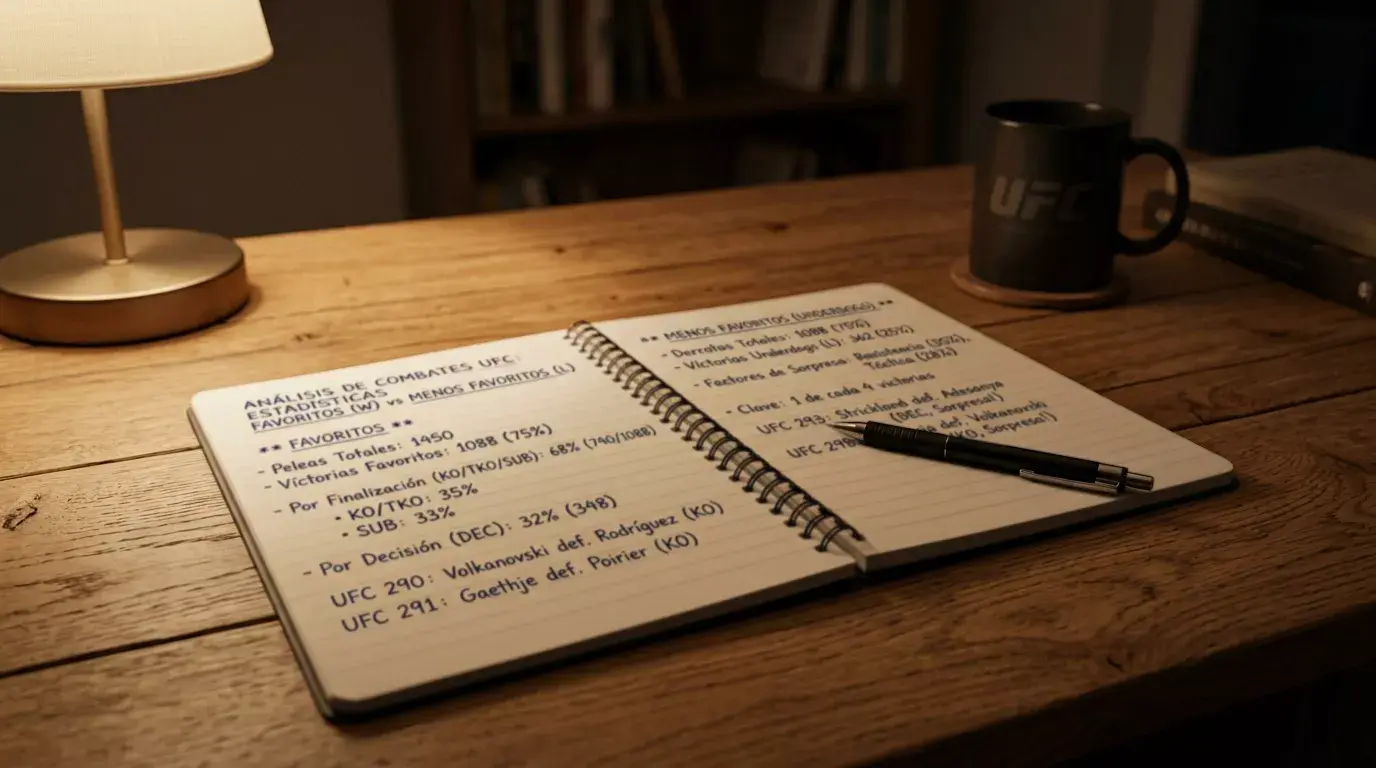 ANÁLISIS DE COMBATES UFC:
ESTADÍSTICAS
FAVORITOS (W) vs MENOS FAVORITOS (L)
** FAVORITOS **
- Peleas Totales: 1450
- Victorias Favoritos: 1088 (75%)
- Por Finalización (KO/TKO/SUB): 68% (740/1088)
• KO/TKO: 35%
• SUB: 33%
- Por Decisión (DEC): 32% (348)
UFC 290: Volkanovski def. Rodríguez (KO)
UFC 291: Gaethje def. Poirier (KO)
** MENOS FAVORITOS (UNDERDOGS) **
- Derrotas Totales: 1088 (75%)
- Victorias Underdogs (L): 362 (25%)
- Factores de Sorpresa: Resistencia (35%),
Táctica (28%)
- Clave: 1 de cada 4 victorias
UFC 293: Strickland def. Adesanya
(DEC, Sorpresa!)
UFC 298 def. Volkanovski
(KO, Sorpresa!)
UFC